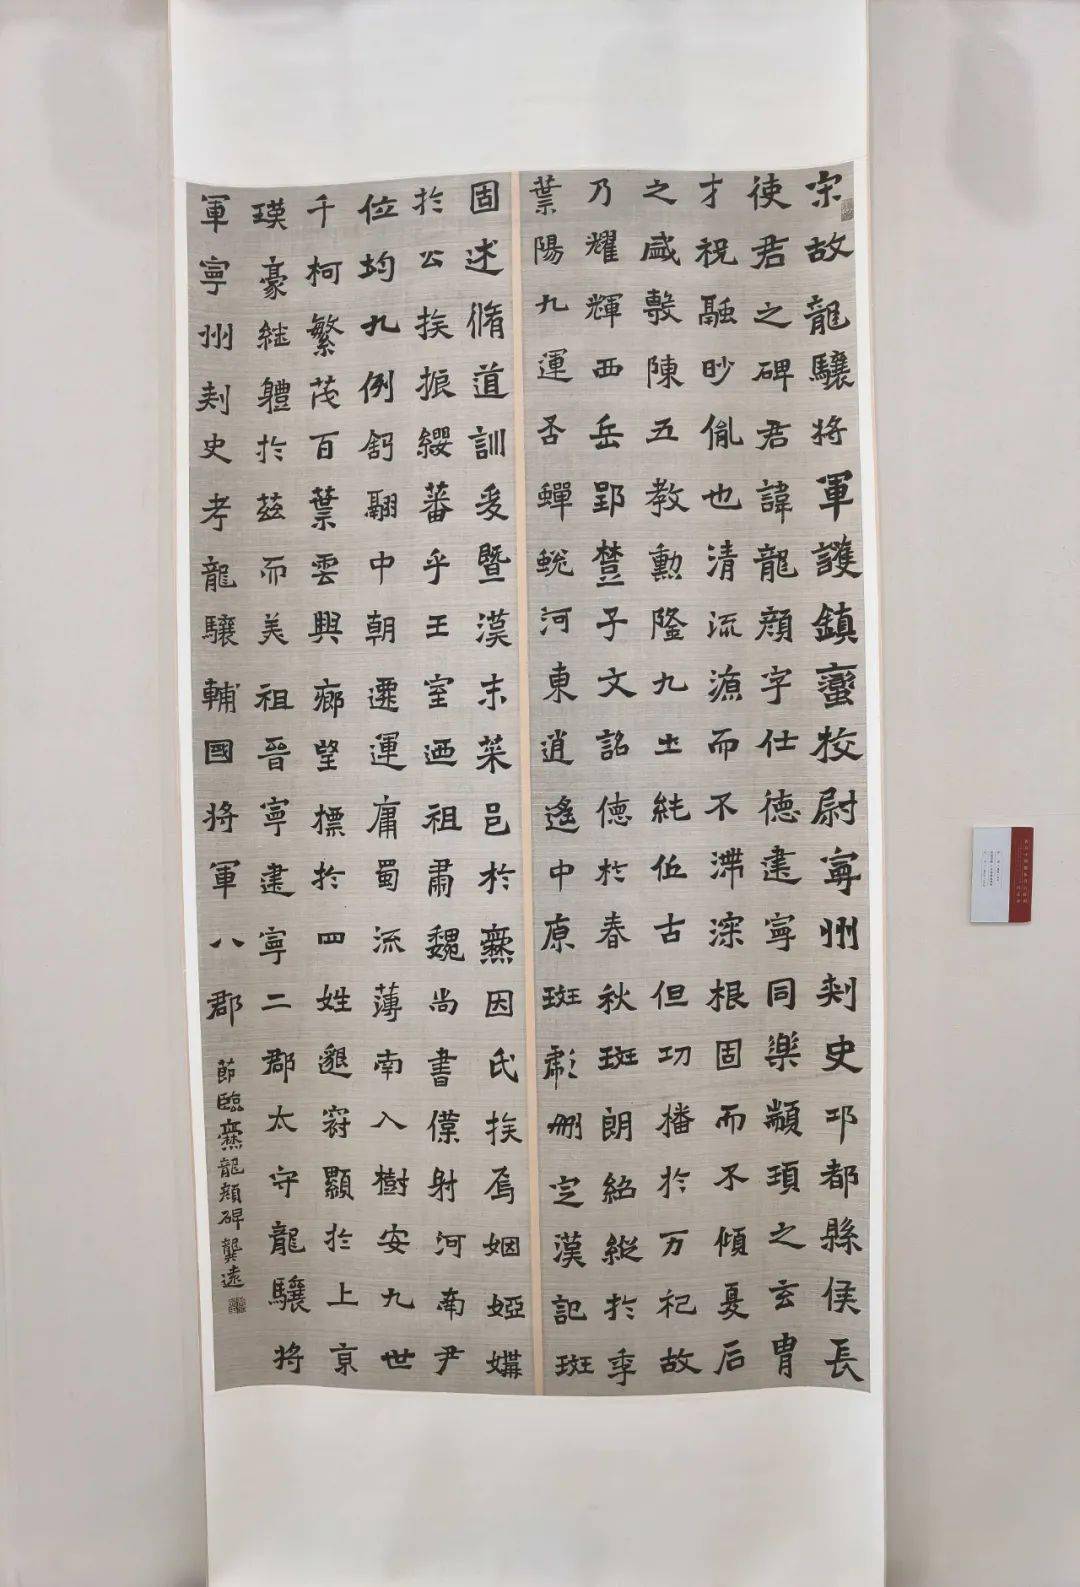 宋故龍驤将軍護鎮蠻挍尉寧州刾史邛都縣侯長
使君之碑君諱龍顔字仕德建寧同樂顓頊之玄胄
才祝融眇胤也清流源而不滯深根固而不傾夏后
之盛敷陳五教勳隆九土純化古但功播於万祀故
乃耀輝西岳郢楚子文詺德於春秋斑朗紹縱於季
葉陽九運否蟬蛻河東逍遙中原斑彪刪定漢記斑
固述脩道訓爰暨漢末菜邑於爨因氏族焉姻婭媾
於公族振纓蕃乎王室迺祖肅魏尚書僕射河南尹
位均九例舒翮中朝遷運庸蜀流薄南入樹安九世
千柯繁茂百葉雲興鄉望標於四姓邈冠顯於上京
瑛豪継體於茲而美祖晉寧建寧二郡太守龍驤将
軍寧州刾史考龍驤輔國将軍八郡
節臨爨龍顔碑龔遠